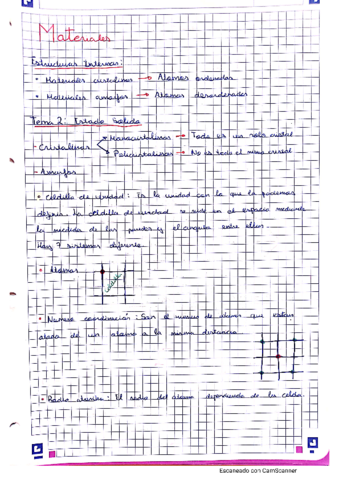 Materiales
Estructuras Internas:
• Materiales cristalinos → Átomos ordenados
• Materiales amorfos → Átomos desordenados
Tema 2: Estado Sólido
- Cristalinos
Monocristalinos → Todo es un solo cristal
Policristalinos → No es todo el mismo cristal
- Amorfos
• Celdilla de unidad: Es la unidad con la que la podemos
definir. La celdilla de unidad se mide en el espacio mediante
la medida de las y el ángulo entre ellos.
Hay 7 sistemas diferente
• Átomos
• Número coordinación: Son el número de átomos que están
alado de un átomo a la misma distancia
• Radio atómico: El radio del átomo dependiendo de la celda.
Escaneado con CamScanner